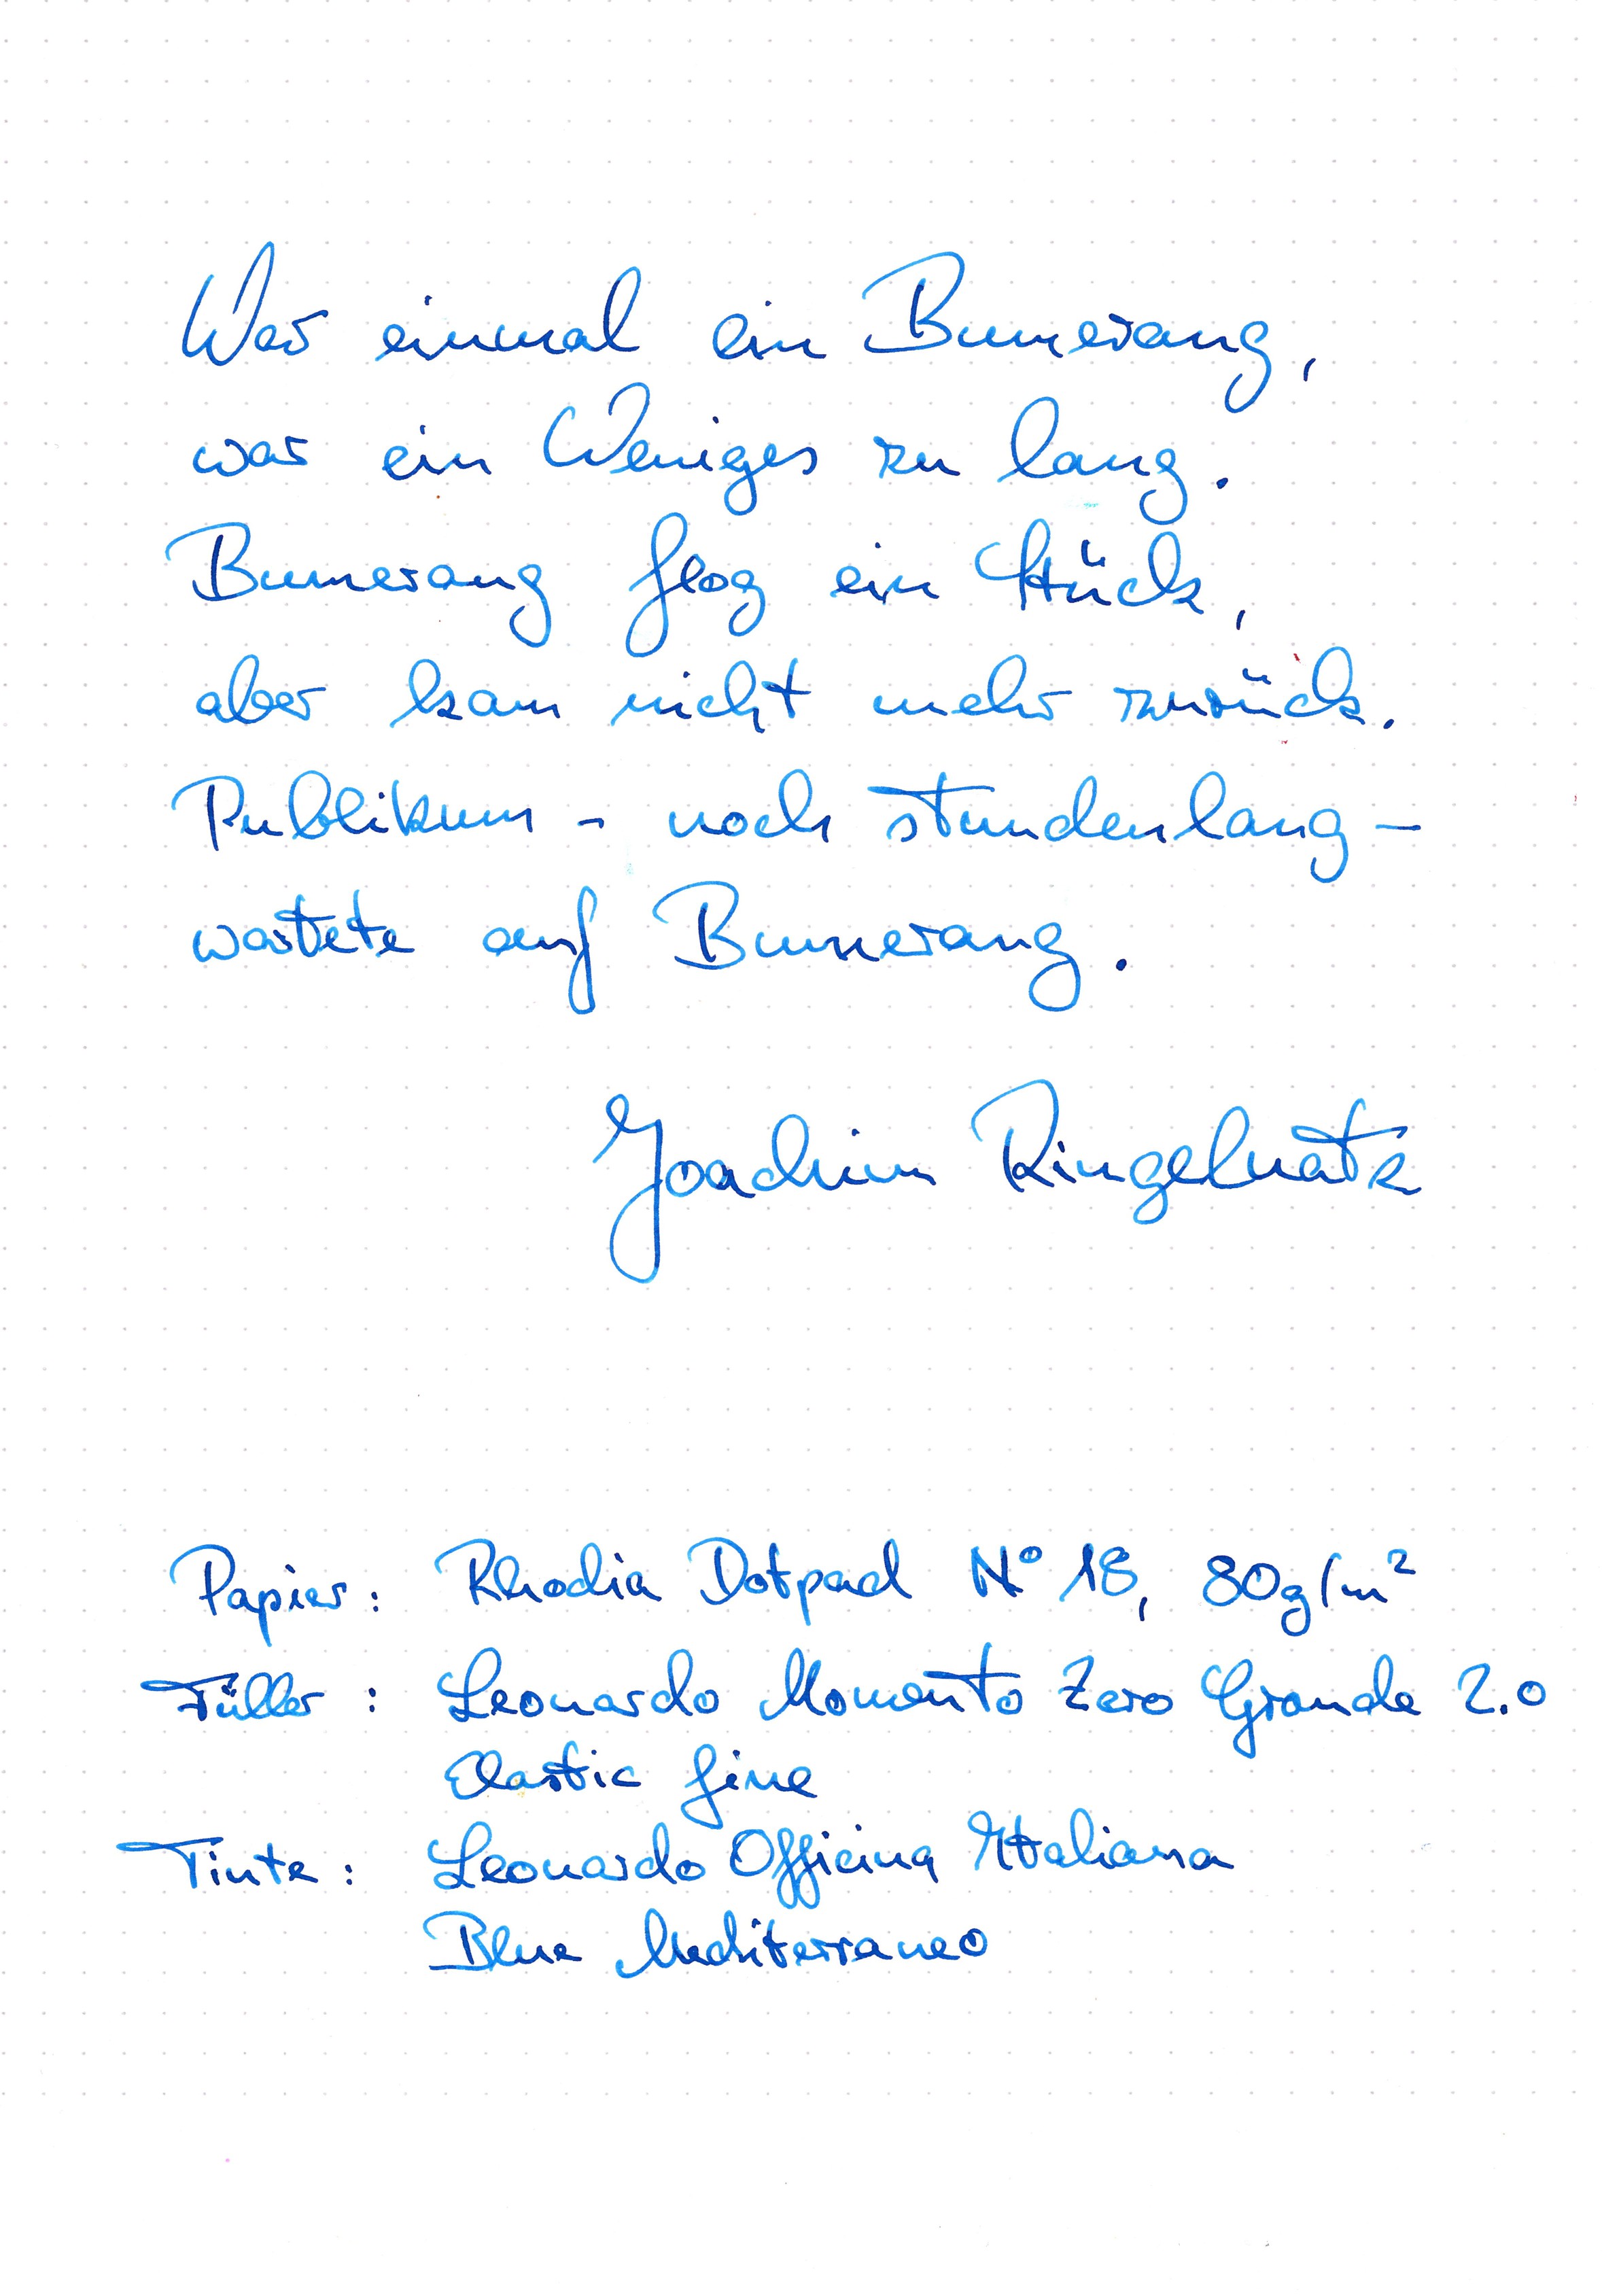 War einmal ein Bumerang,
war ein Weniges zu lang.
Bumerang flog ein Stück,
aber kam nicht mehr zurück.
Publikum - noch stundenlang -
wartete auf Bumerang.
Joachim Ringelnatz
Papier: Rhodia Dotpad N° 18, 80g/m²
Füller: Leonardo Momento Zero Grande 2.0
Elastic fine
Tinte: Leonardo Officina Italiana
Blue Mediterraneo